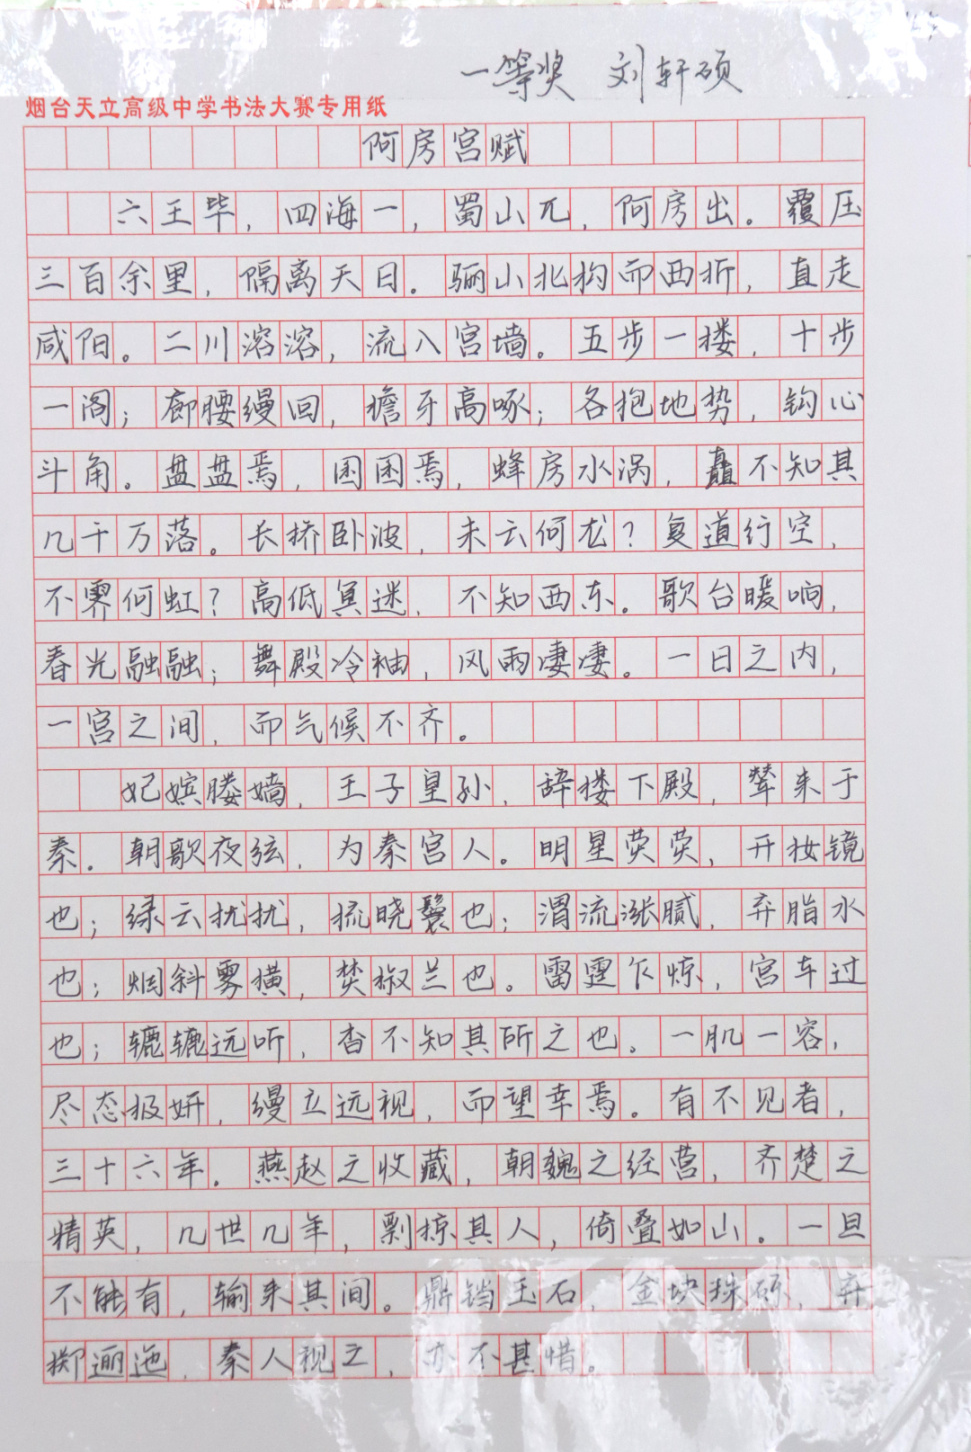 一等奖 刘轩硕
烟台天立高级中学书法大赛专用纸
阿房宫赋
六王毕，四海一，蜀山兀，阿房出。覆压
三百余里，隔离天日。骊山北构而西折，直走
咸阳。二川溶溶，流入宫墙。五步一楼，十步
一阁；廊腰缦回，檐牙高啄；各抱地势，钩心
斗角。盘盘焉，囷囷焉，蜂房水涡，矗不知其
几千万落。长桥卧波，未云何龙？复道行空，
不霁何虹？高低冥迷，不知西东。歌台暖响，
春光融融；舞殿冷袖，风雨凄凄。一日之内，
一宫之间，而气候不齐。
妃嫔媵嫱，王子皇孙，辞楼下殿，辇来于
秦。朝歌夜弦，为秦宫人。明星荧荧，开妆镜
也；绿云扰扰，梳晓鬟也；渭流涨腻，弃脂水
也；烟斜雾横，焚椒兰也。雷霆乍惊，宫车过
也；辘辘远听，杳不知其所之也。一肌一容，
尽态极妍，缦立远视，而望幸焉。有不见者，
三十六年。燕赵之收藏，朝魏之经营，齐楚之
精英，几世几年，剽掠其人，倚叠如山。一旦
不能有，输来其间。鼎铛玉石，金块珠砾，弃
掷逦迤，秦人视之，亦不甚惜。